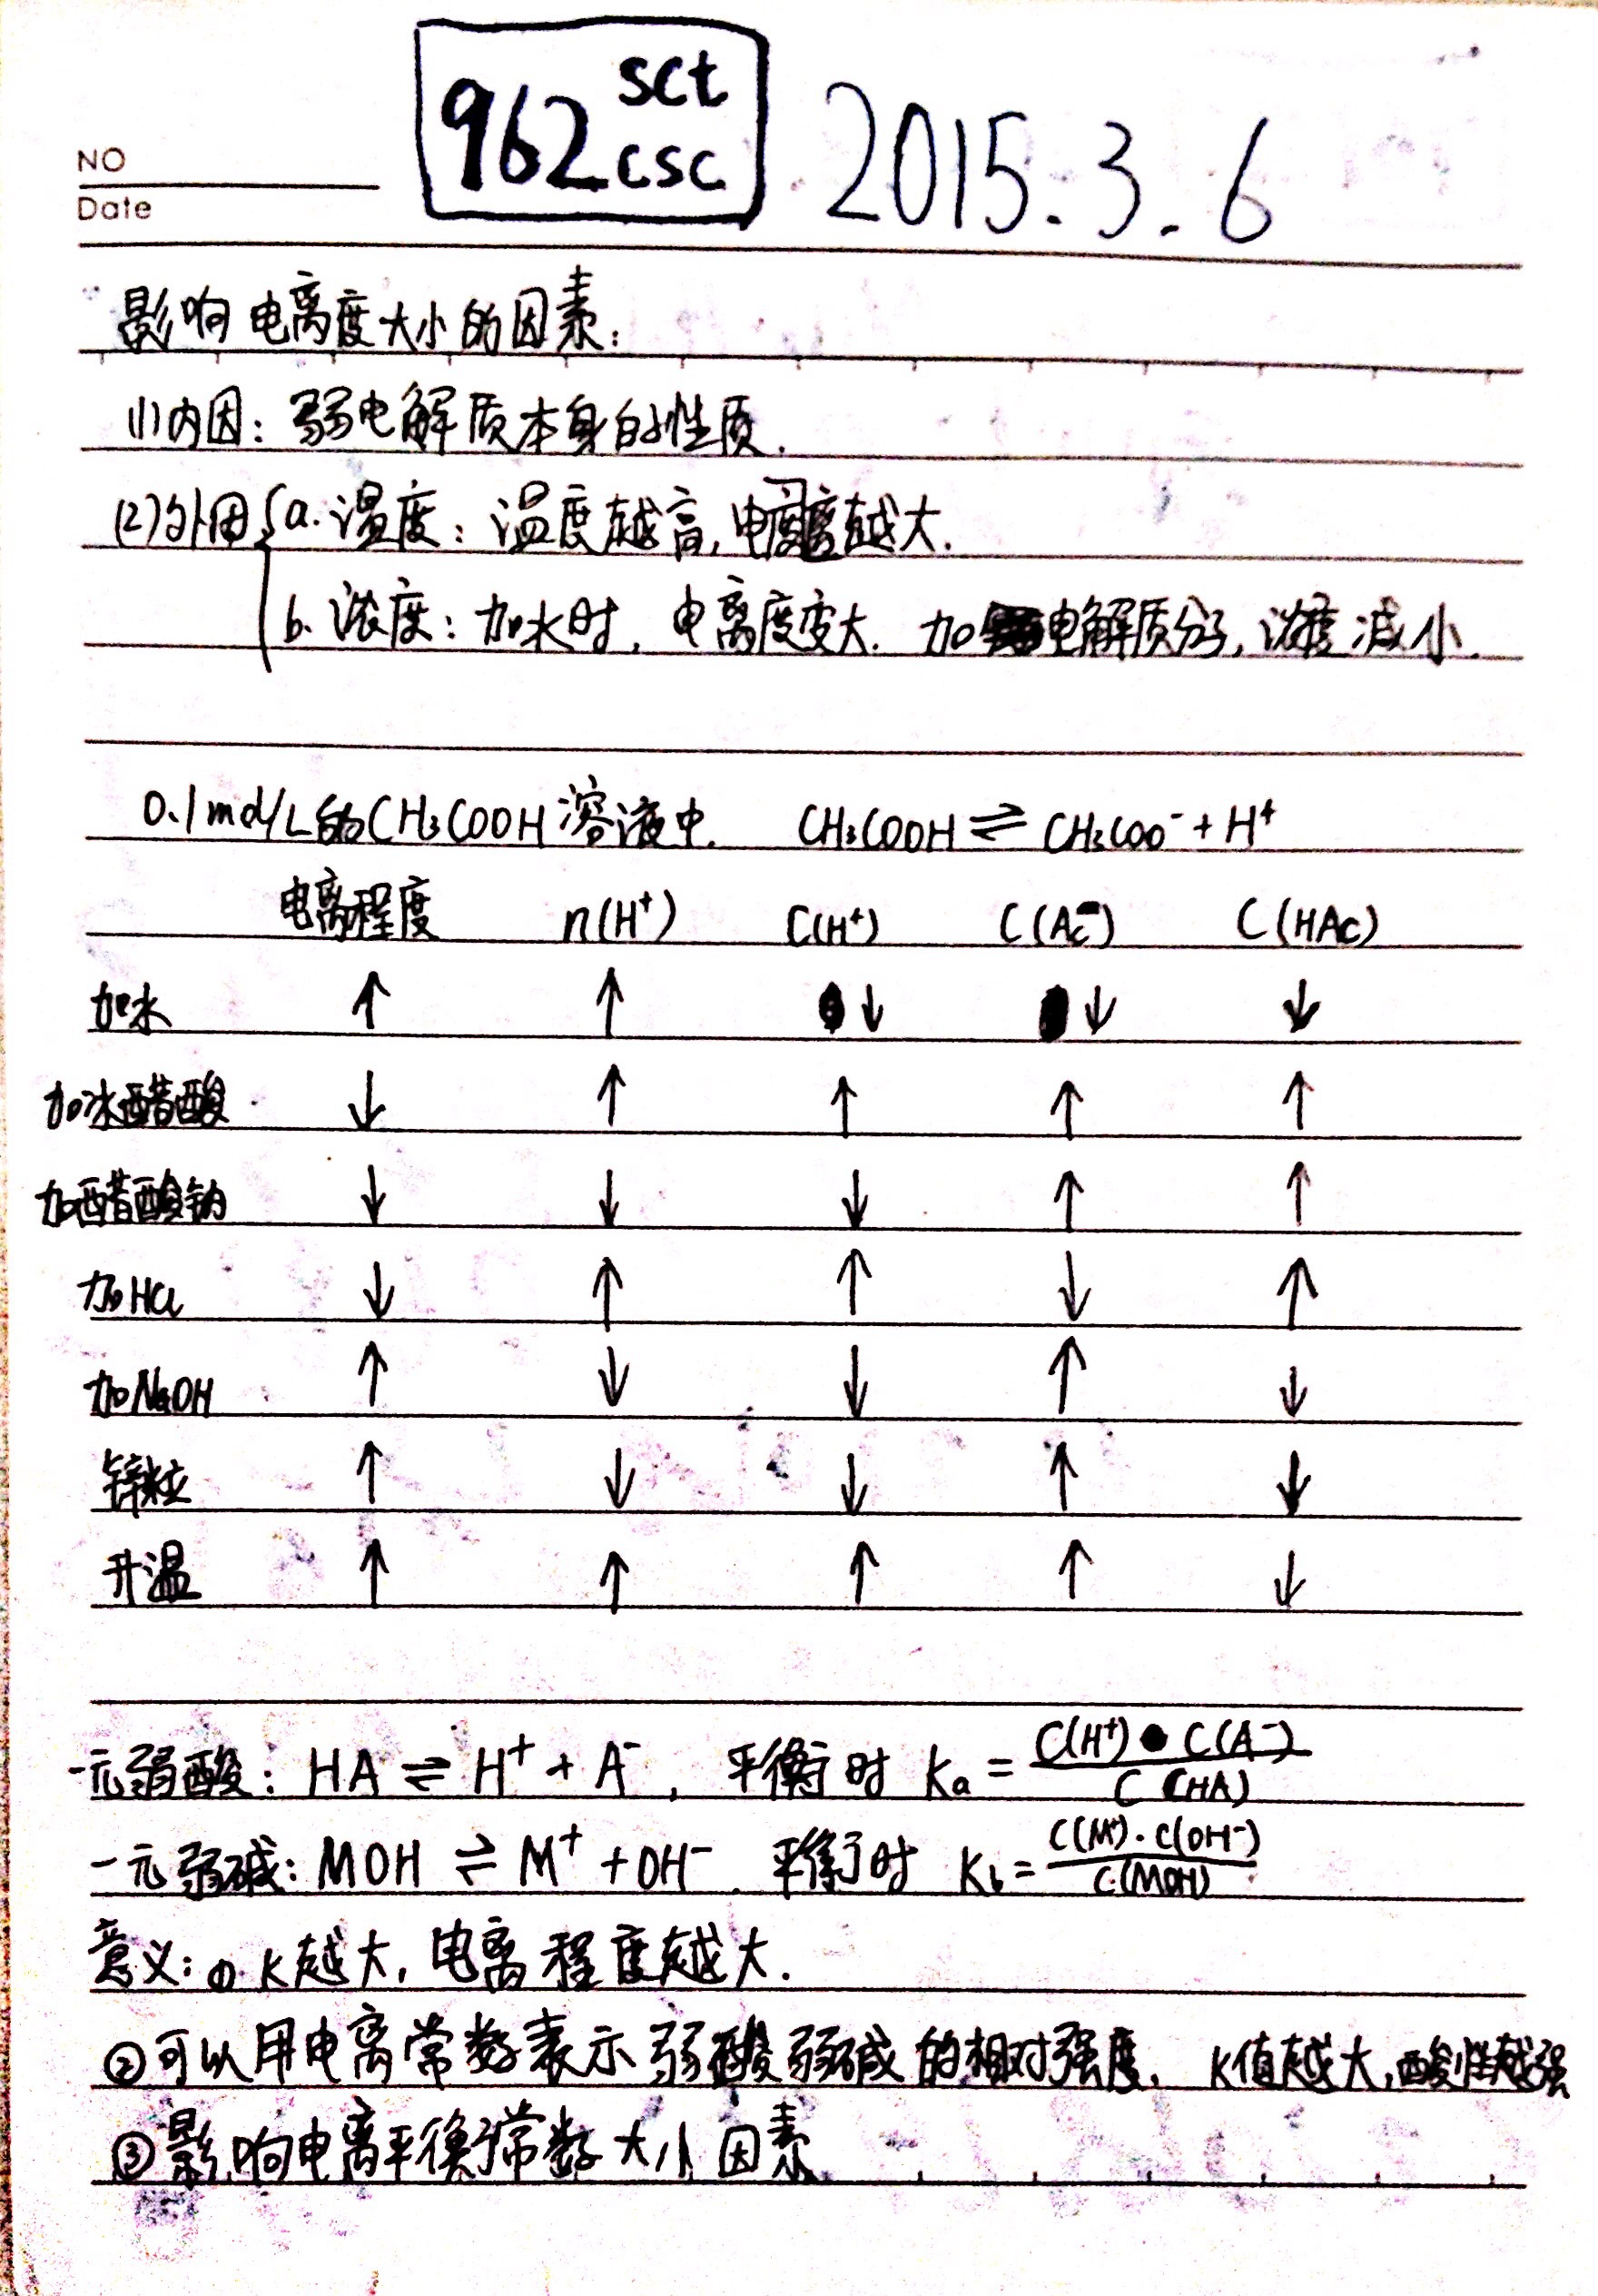 sct
962 csc
2015.3.6
NO
Date
影响电离度大小的因素:
(1)内因: 弱电解质本身的性质.
(2)外因{a.温度: 温度越高,电离度越大.
b.浓度: 加水时, 电离度变大. 加电解质分子, 浓度减小.
0.1mol/L的CH₃COOH溶液中. CH₃COOH⇌CH₃COO⁻+H⁺
电离程度 n(H⁺) C(H⁺) C(Ac⁻) C(HAc)
加水 ↑ ↑ ↓ ↓ ↓
加冰醋酸 ↓ ↑ ↑ ↑ ↑
加醋酸钠 ↓ ↓ ↓ ↑ ↑
加HCl ↓ ↑ ↑ ↓ ↑
加NaOH ↑ ↓ ↓ ↑ ↓
锌粒 ↑ ↓ ↓ ↑ ↓
升温 ↑ ↑ ↑ ↑ ↓
一元弱酸: HA⇌H⁺+A⁻, 平衡时 Ka=C(H⁺)·C(A⁻)/C(HA)
一元弱碱: MOH⇌M⁺+OH⁻. 平衡时 Kb=C(M⁺)·C(OH⁻)/C(MOH)
意义:①K越大,电离程度越大.
②可以用电离常数表示弱酸弱碱的相对强度. K值越大,酸性越强
③影响电离平衡常数大小因素